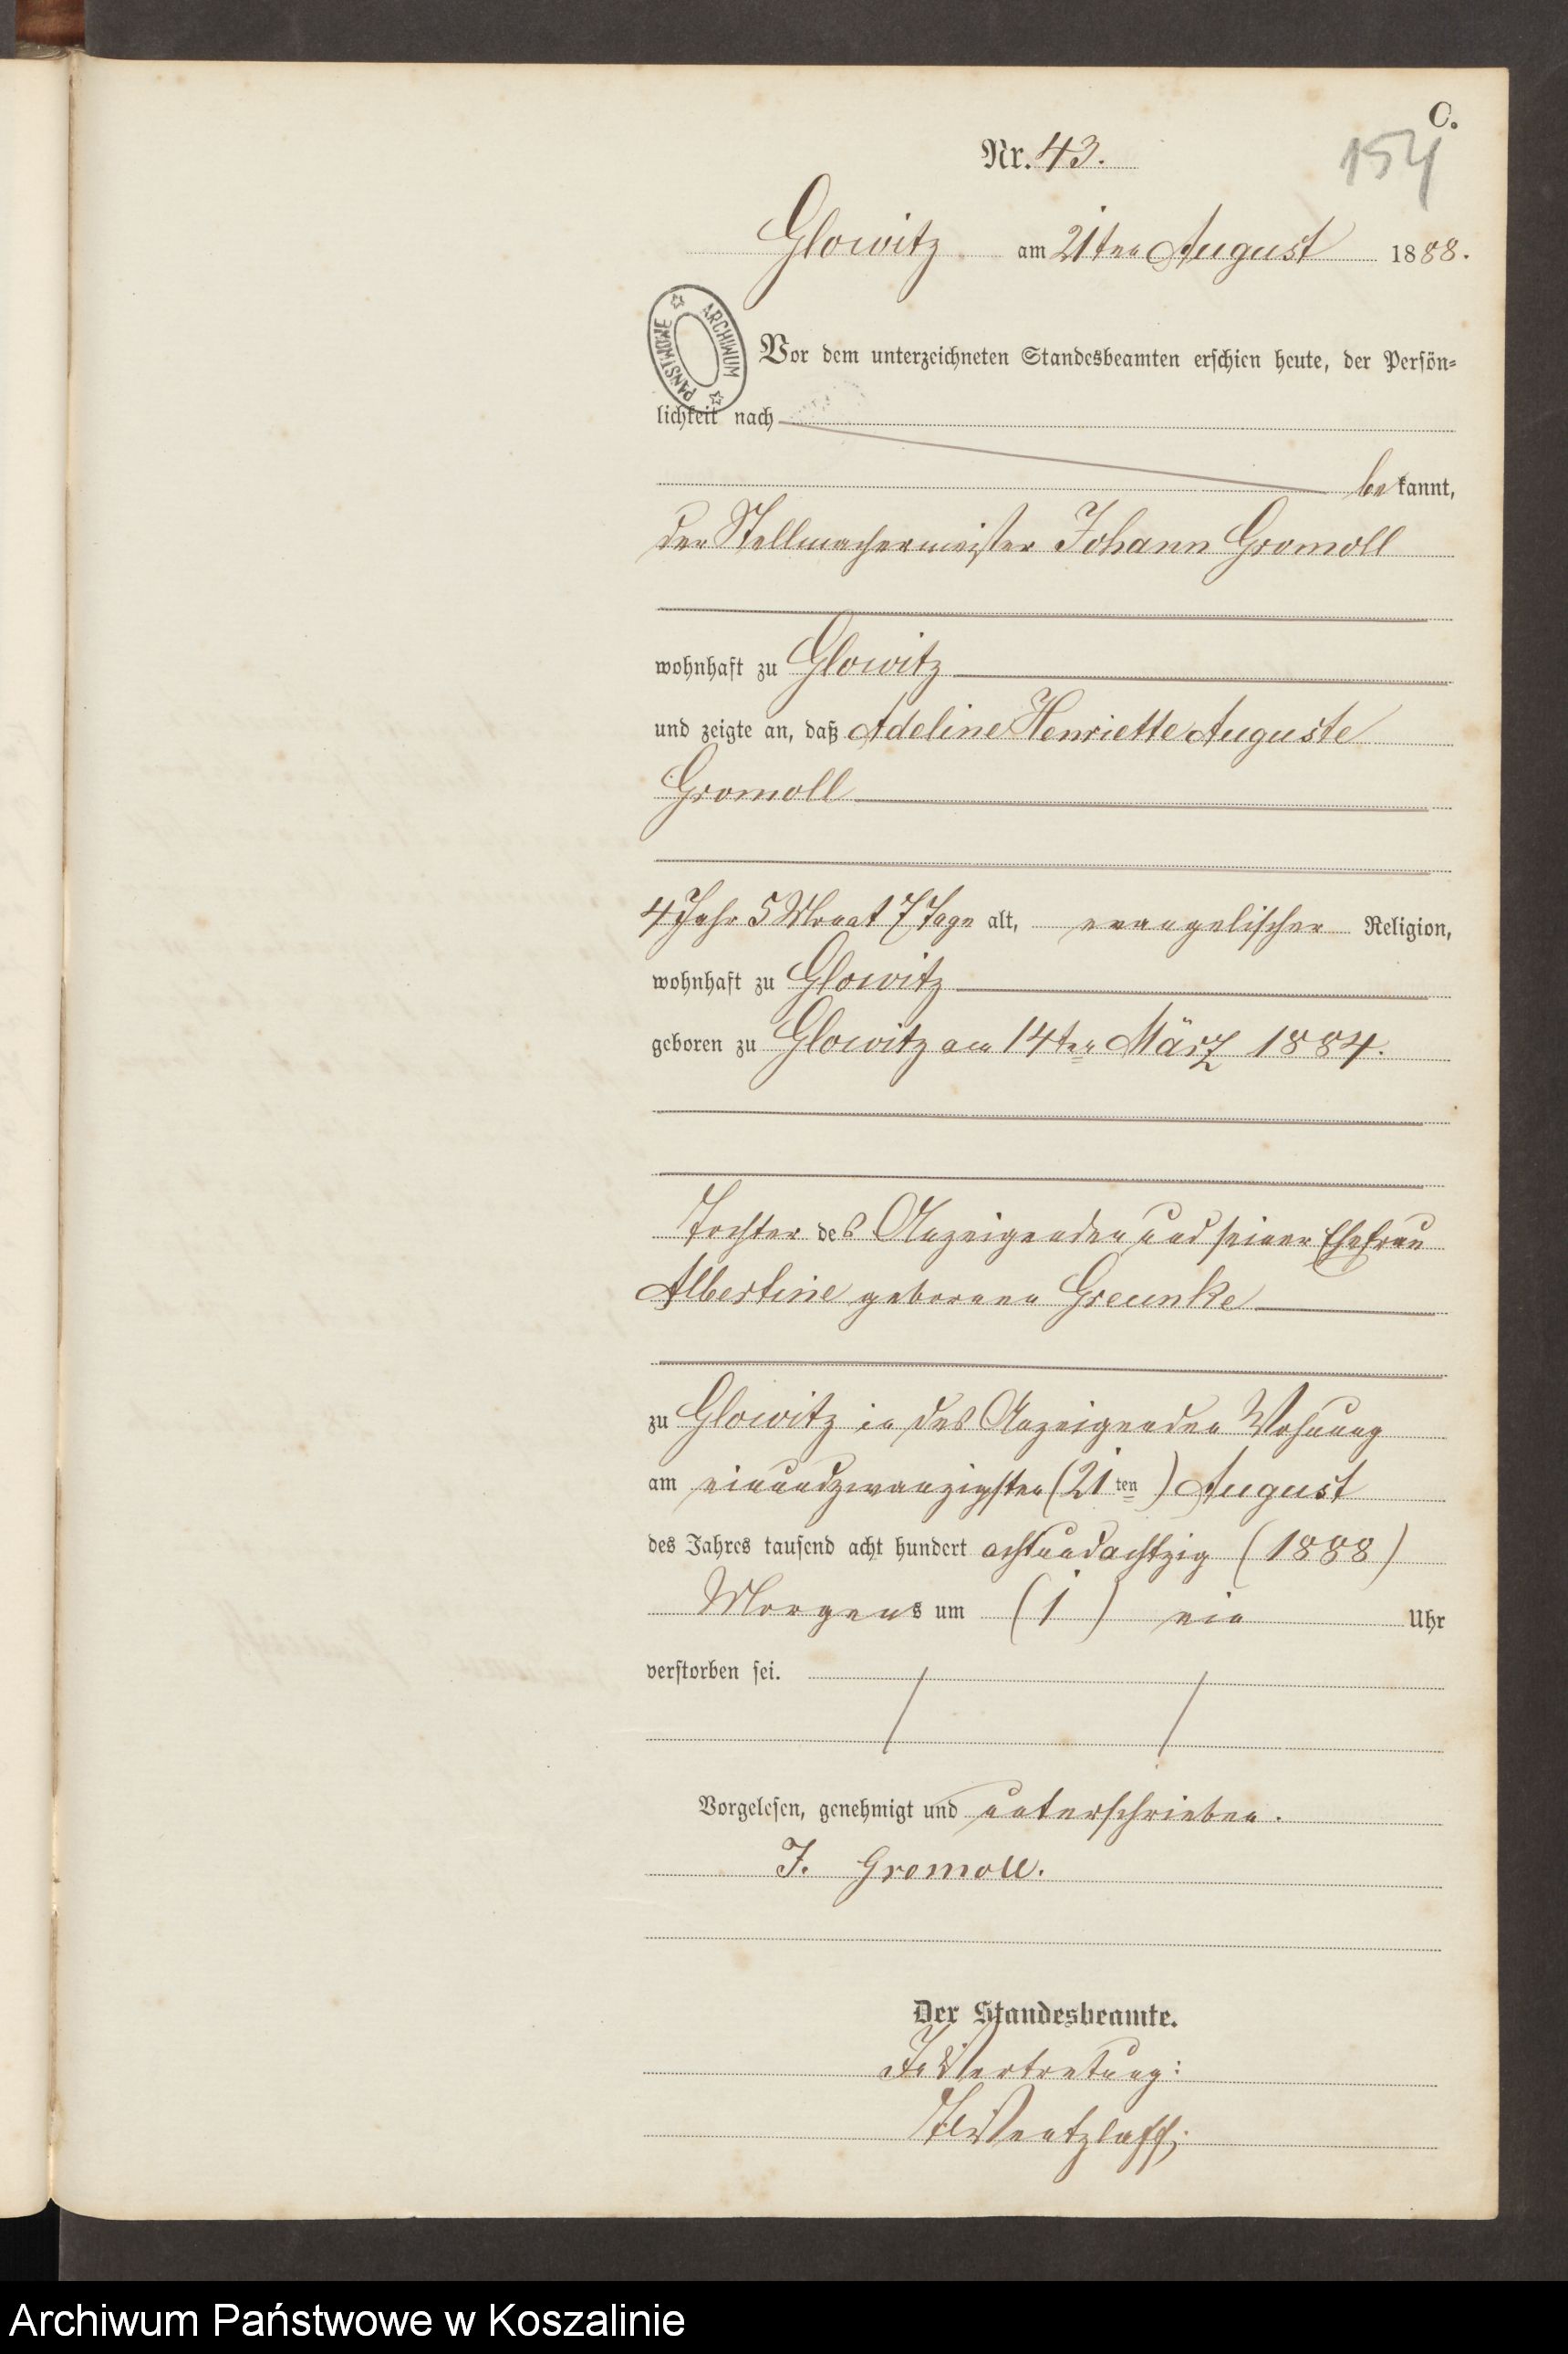 C.
154
Nr. 43.
Glowitz am 21ten August 1888.
ARCHIWUM PAŃSTWOWE
Vor dem unterzeichneten Standesbeamten erschien heute, der Persön-
lichkeit nach
bekannt,
der Stellmachermeister Johann Gromoll
wohnhaft zu Glowitz
und zeigte an, daß Adeline Henriette Auguste
Gromoll
4 Jahr 5 Monat 7 Tage alt, evangelischer Religion,
wohnhaft zu Glowitz
geboren zu Glowitz am 14ten März 1884.
Tochter des Anzeigenden und seiner Ehefrau
Albertine geborene Greunke
zu Glowitz in des Anzeigenden Wohnung
am einundzwanzigsten (21ten) August
des Jahres tausend acht hundert achtundachtzig (1888)
Morgens um (1) ein Uhr
verstorben sei.
Vorgelesen, genehmigt und unterschrieben.
J. Gromoll.
Der Standesbeamte.
In Vertretung:
Wentzlaff
Archiwum Państwowe w Koszalinie